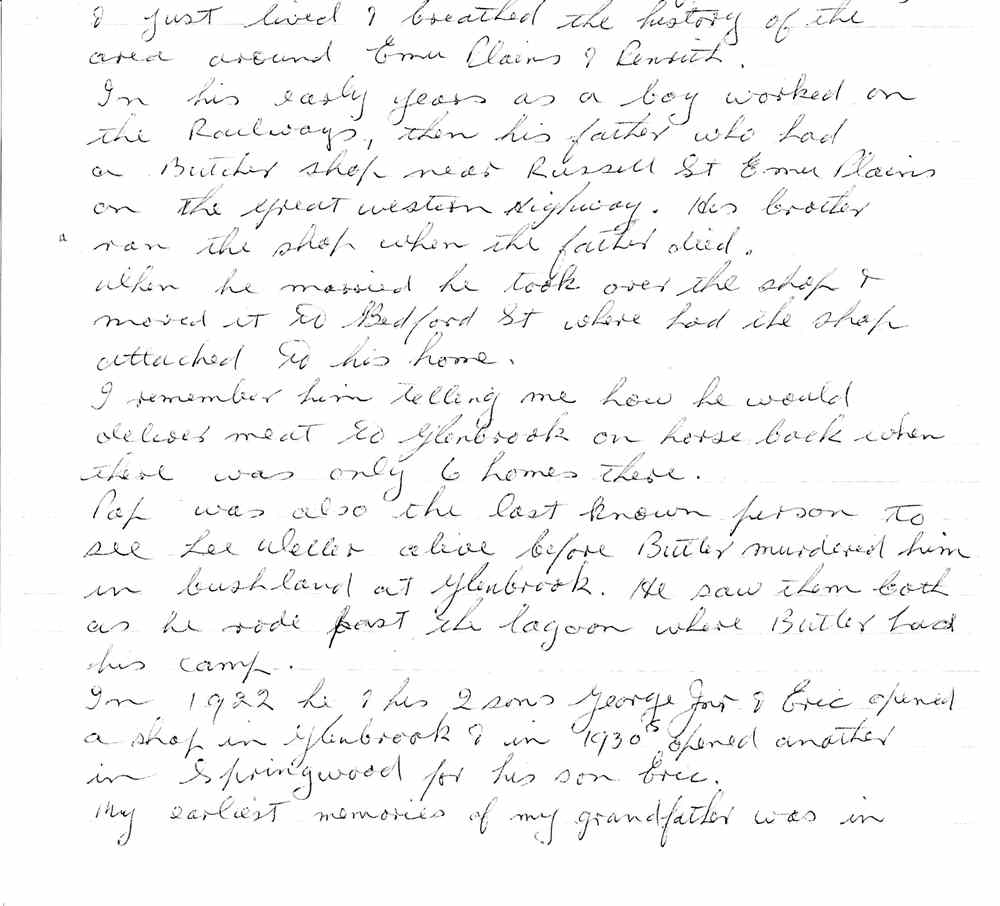 & just lived & breathed the history of the
area around Emu Plains & Penrith.
In his early years as a boy worked on
the Railways, then his father who had
a Butcher shop near Russell St Emu Plains
on the great western Highway. His brother
ran the shop when the father died.
When he married he took over the shop &
moved it to Bedford St where had the shop
attached to his home.
I remember him telling me how he would
deliver meat to Glenbrook on horse back when
there was only 6 homes there.
Pop was also the last known person to
see Lee Weller alive before Butler murdered him
in bushland at Glenbrook. He saw them both
as he rode past the lagoon where Butler had
his camp.
In 1922 he & his 2 sons George Jnr & Eric opened
a shop in Glenbrook & in 1930s opened another
in Springwood for his son Eric.
My earliest memories of my grandfather was in